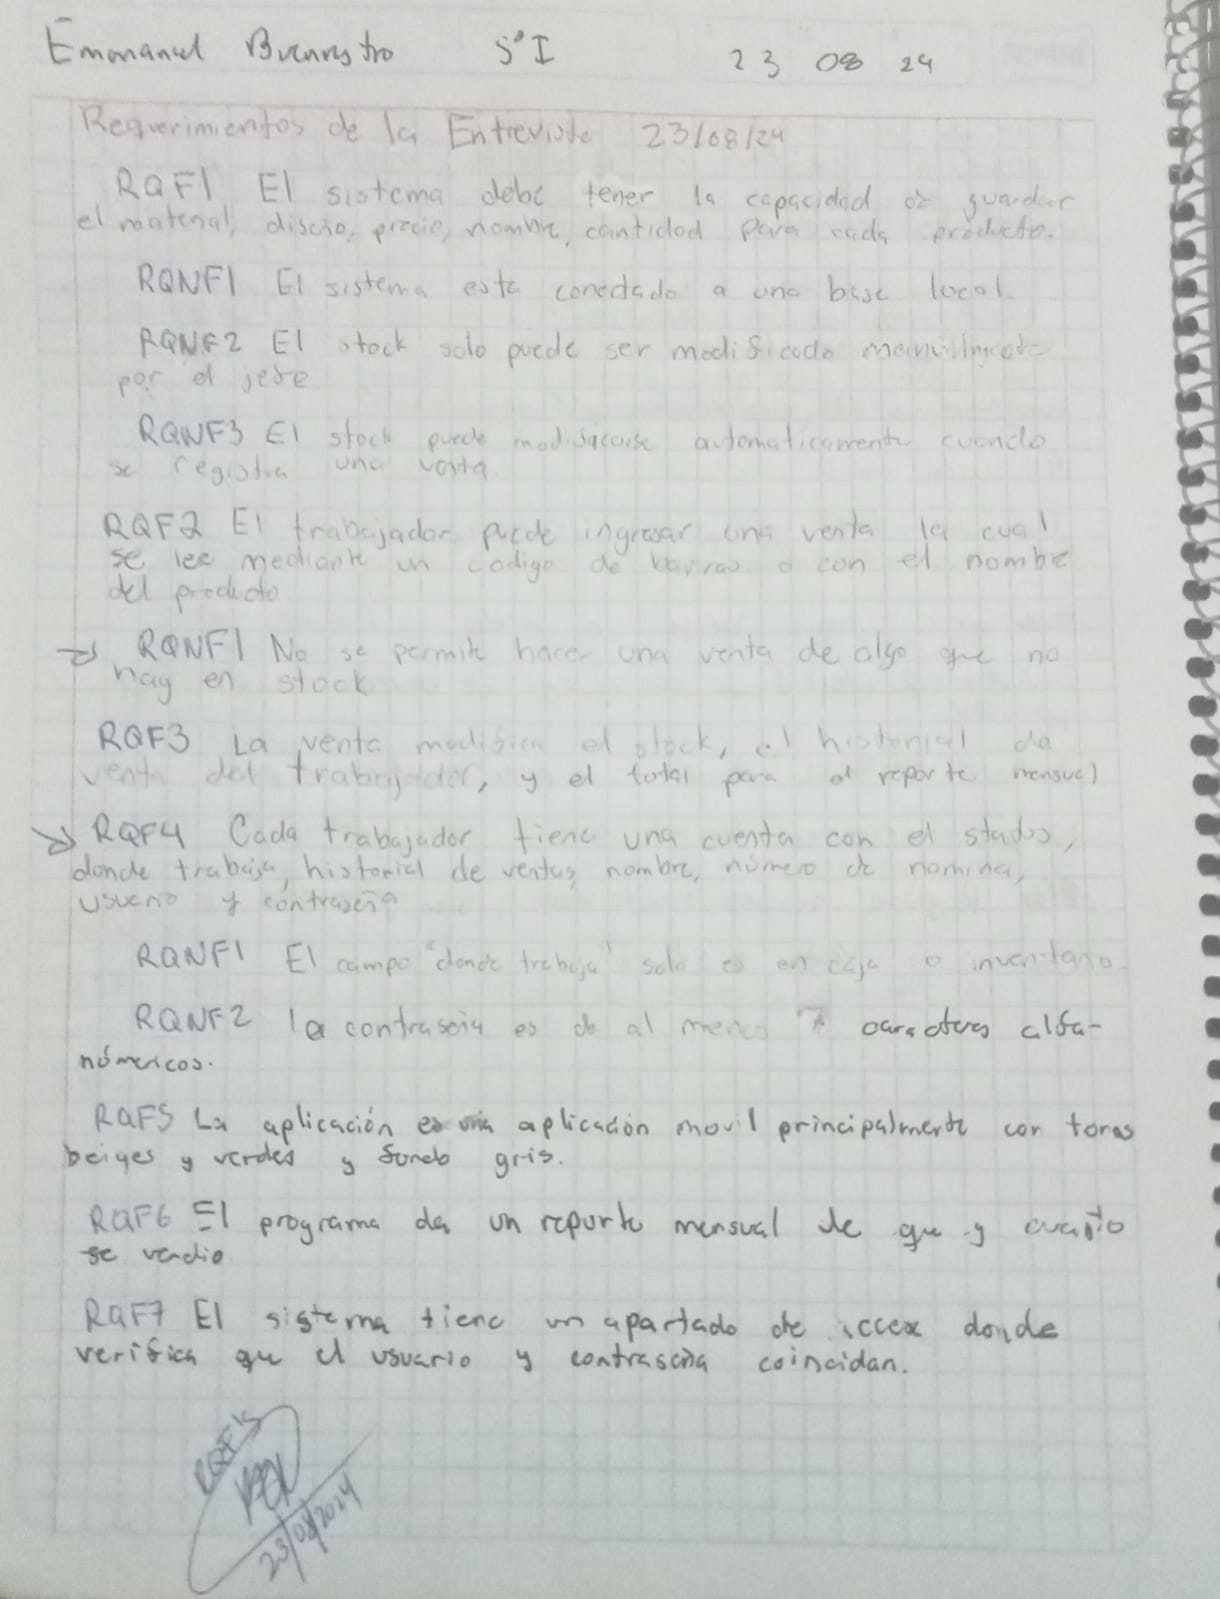 Emmanuel Buenrostro 5°I 23 08 24
Requerimientos de la Entrevista 23/08/24
RQF1 El sistema debe tener la capacidad de guardar
el material, diseño, precio, nombre, cantidad para cada producto.
RQNF1 El sistema esta conectado a una base local
RQNF2 El stock solo puede ser modificado manualmente
por el jefe.
RQNF3 El stock puede modificarse automaticamente cuando
se registra una venta.
RQF2 El trabajador puede ingresar una venta la cual
se lee mediante un codigo de barras o con el nombre
del producto
RQNF1 No se permite hacer una venta de algo que no
hay en stock
RQF3 La venta modifica el stock, el historial de
venta del trabajador, y el total para el reporte mensual
RQF4 Cada trabajador tiene una cuenta con el
donde trabaja, historial de ventas, nombre, número de nomina,
y contraseña
RQNF1 El campo "donde trabaja" solo es en caja o inventario.
RQNF2 la contraseña es de al menos 7 caracteres alfa-
númericos.
RQF5 La aplicación es una aplicación movil principalmente con tonos
beiges y verdes y fondo gris.
RQF6 El programa da un reporte mensual de que y cuanto
se vendio
RQF7 El sistema tiene un apartado de donde
verifica que el usuario y contraseña coincidan.
RQF's
23/08/2024